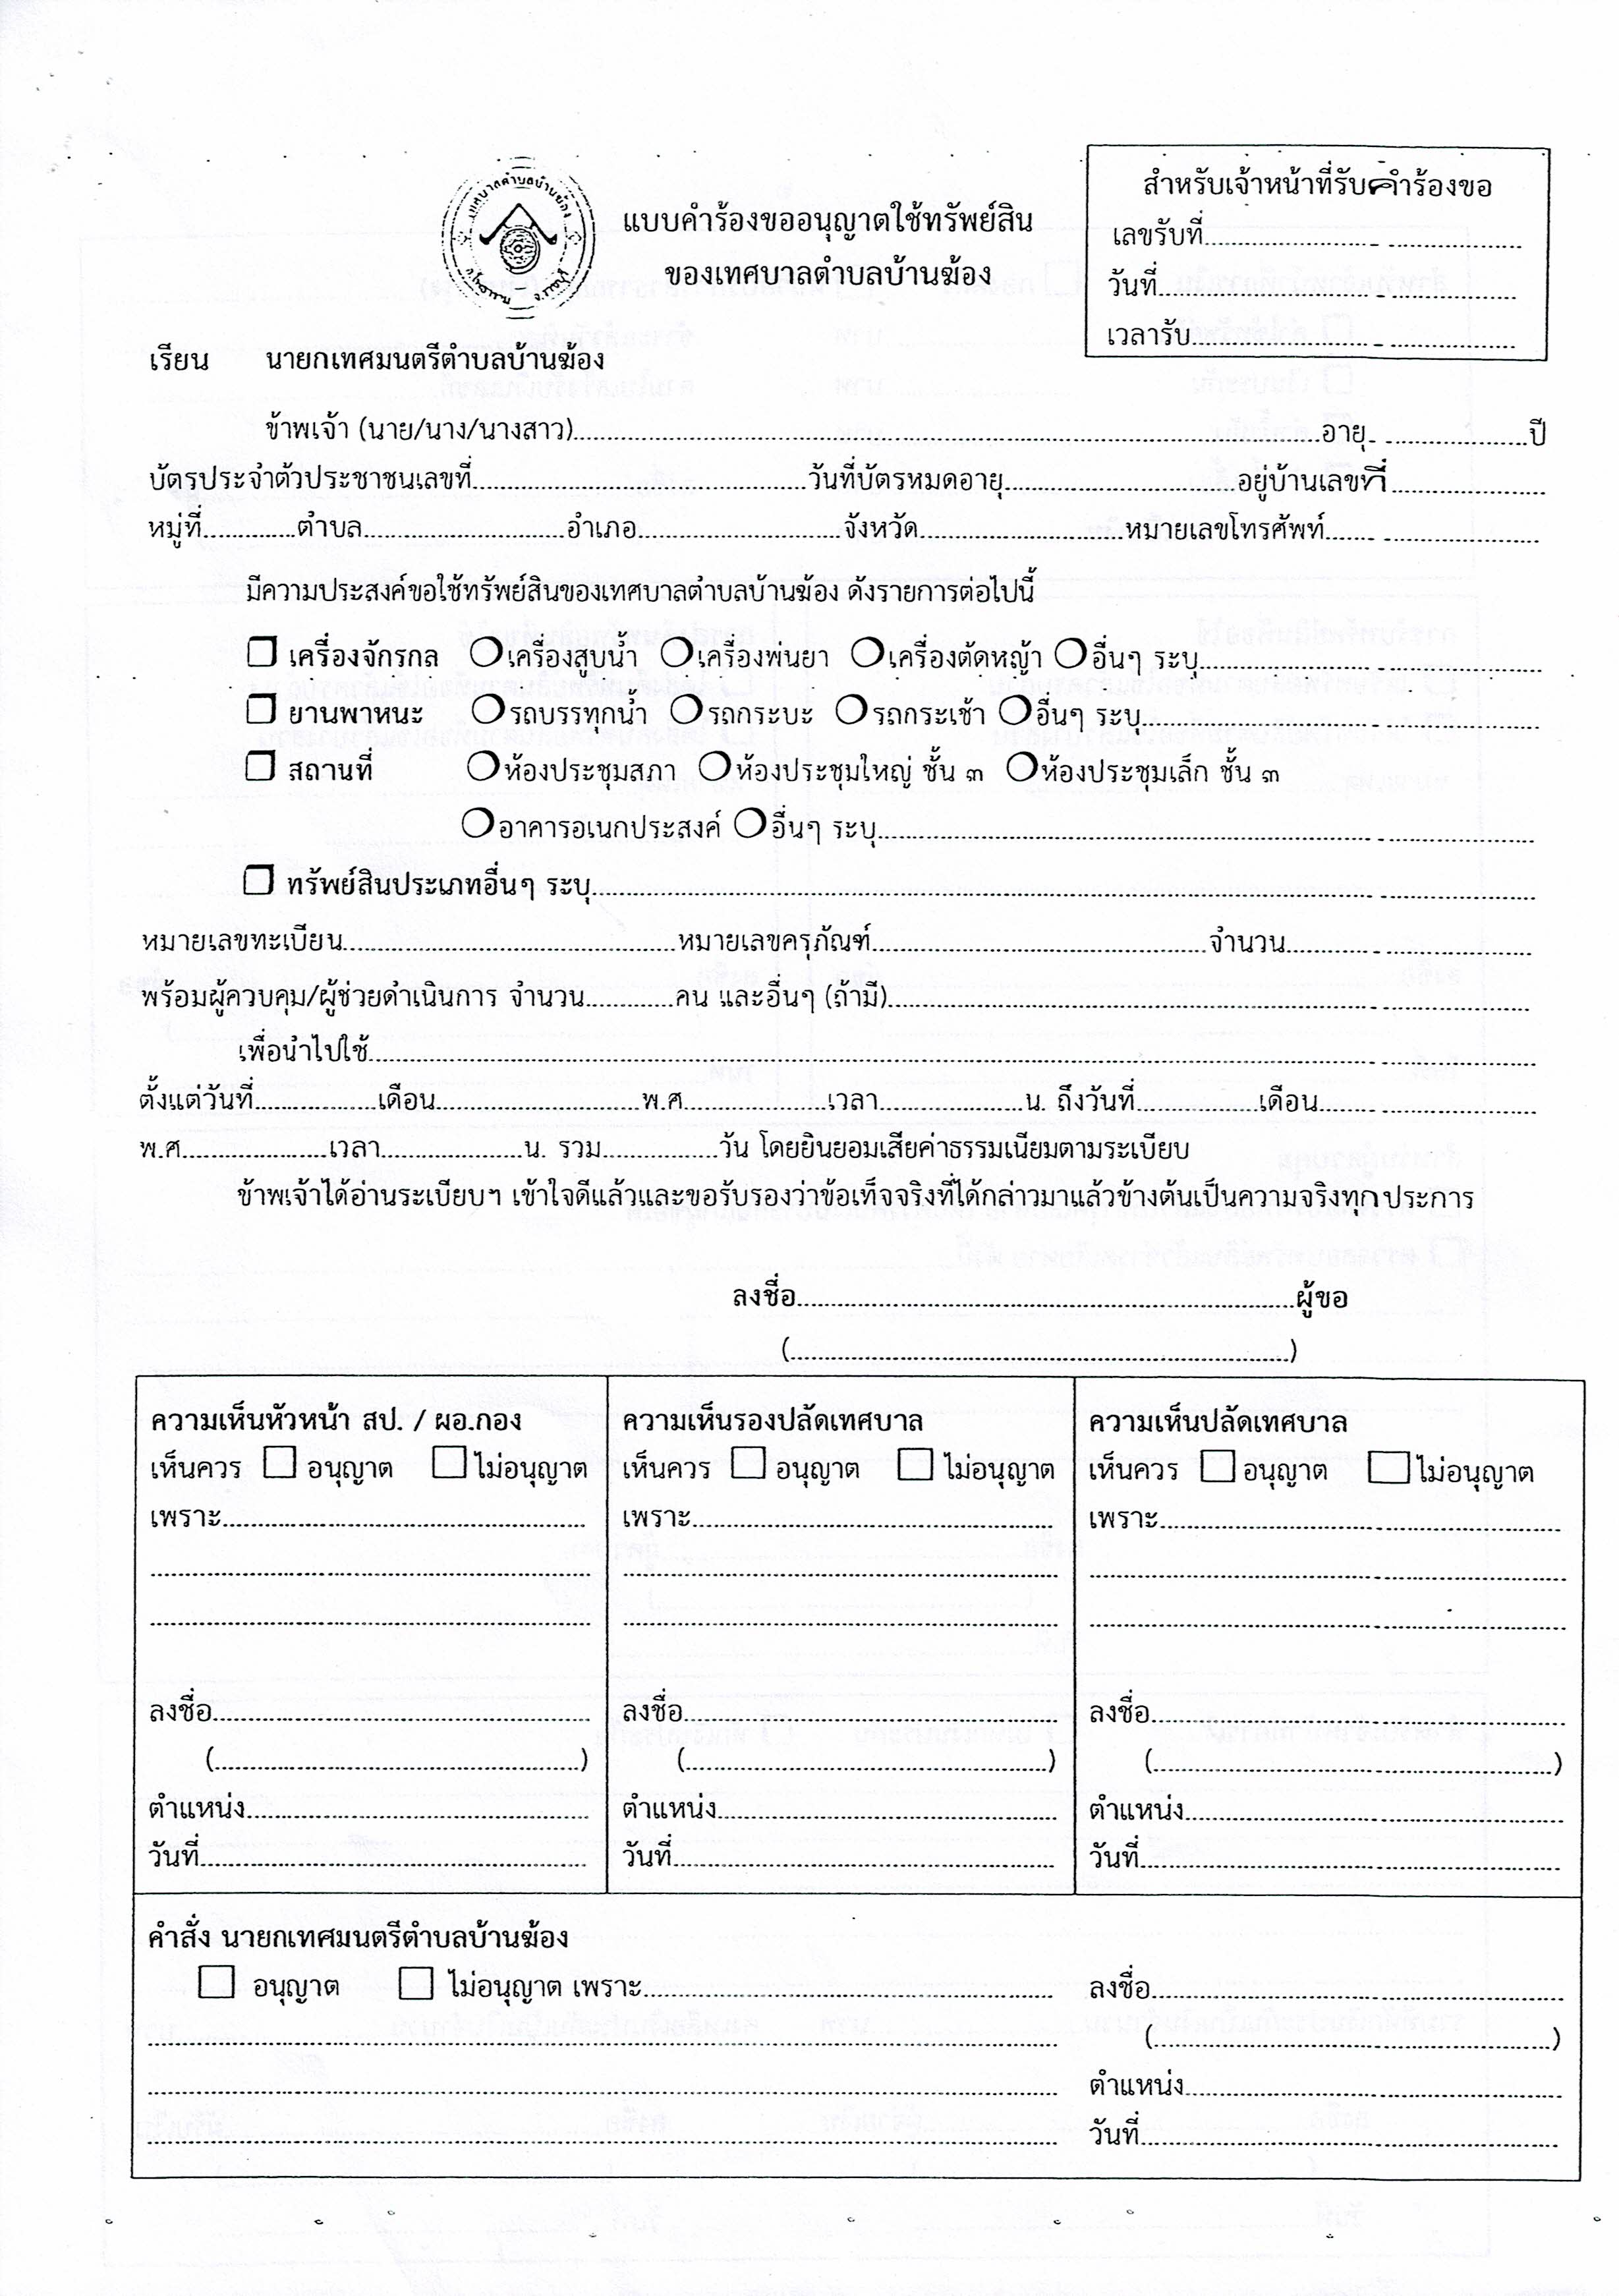 สำหรับเจ้าหน้าที่รับคำร้องขอ
เลขรับที่
วันที่
เวลารับ
เทศบาลตำบลบ้านฆ้อง
อ.โพธาราม จ.ราชบุรี
แบบคำร้องขออนุญาตใช้ทรัพย์สิน
ของเทศบาลตำบลบ้านฆ้อง
เรียน นายกเทศมนตรีตำบลบ้านฆ้อง
ข้าพเจ้า (นาย/นาง/นางสาว)........................อายุ............ปี
บัตรประจำตัวประชาชนเลขที่............วันที่บัตรหมดอายุ............อยู่บ้านเลขที่............
หมู่ที่............ตำบล............อำเภอ............จังหวัด............หมายเลขโทรศัพท์............
มีความประสงค์ขอใช้ทรัพย์สินของเทศบาลตำบลบ้านฆ้อง ดังรายการต่อไปนี้
☐ เครื่องจักรกล ○เครื่องสูบน้ำ ○เครื่องพ่นยา ○เครื่องตัดหญ้า ○อื่นๆ ระบุ............
☐ ยานพาหนะ ○รถบรรทุกน้ำ ○รถกระบะ ○รถกระเช้า ○อื่นๆ ระบุ............
☐ สถานที่ ○ห้องประชุมสภา ○ห้องประชุมใหญ่ ชั้น ๓ ○ห้องประชุมเล็ก ชั้น ๓
○อาคารอเนกประสงค์ ○อื่นๆ ระบุ............
☐ ทรัพย์สินประเภทอื่นๆ ระบุ............
หมายเลขทะเบียน............หมายเลขครุภัณฑ์............จำนวน............
พร้อมผู้ควบคุม/ผู้ช่วยดำเนินการ จำนวน............คน และอื่นๆ (ถ้ามี)............
เพื่อนำไปใช้............
ตั้งแต่วันที่............เดือน............พ.ศ............เวลา............น. ถึงวันที่............เดือน............
พ.ศ............เวลา............น. รวม............วัน โดยยินยอมเสียค่าธรรมเนียมตามระเบียบ
ข้าพเจ้าได้อ่านระเบียบฯ เข้าใจดีแล้วและขอรับรองว่าข้อเท็จจริงที่ได้กล่าวมาแล้วข้างต้นเป็นความจริงทุกประการ
ลงชื่อ............ผู้ขอ
(............)
ความเห็นหัวหน้า สป. / ผอ.กอง
เห็นควร ☐ อนุญาต ☐ ไม่อนุญาต
เพราะ............
ลงชื่อ............
(............)
ตำแหน่ง............
วันที่............
ความเห็นรองปลัดเทศบาล
เห็นควร ☐ อนุญาต ☐ ไม่อนุญาต
เพราะ............
ลงชื่อ............
(............)
ตำแหน่ง............
วันที่............
ความเห็นปลัดเทศบาล
เห็นควร ☐ อนุญาต ☐ ไม่อนุญาต
เพราะ............
ลงชื่อ............
(............)
ตำแหน่ง............
วันที่............
คำสั่ง นายกเทศมนตรีตำบลบ้านฆ้อง
☐ อนุญาต ☐ ไม่อนุญาต เพราะ............
ลงชื่อ............
(............)
ตำแหน่ง............
วันที่............